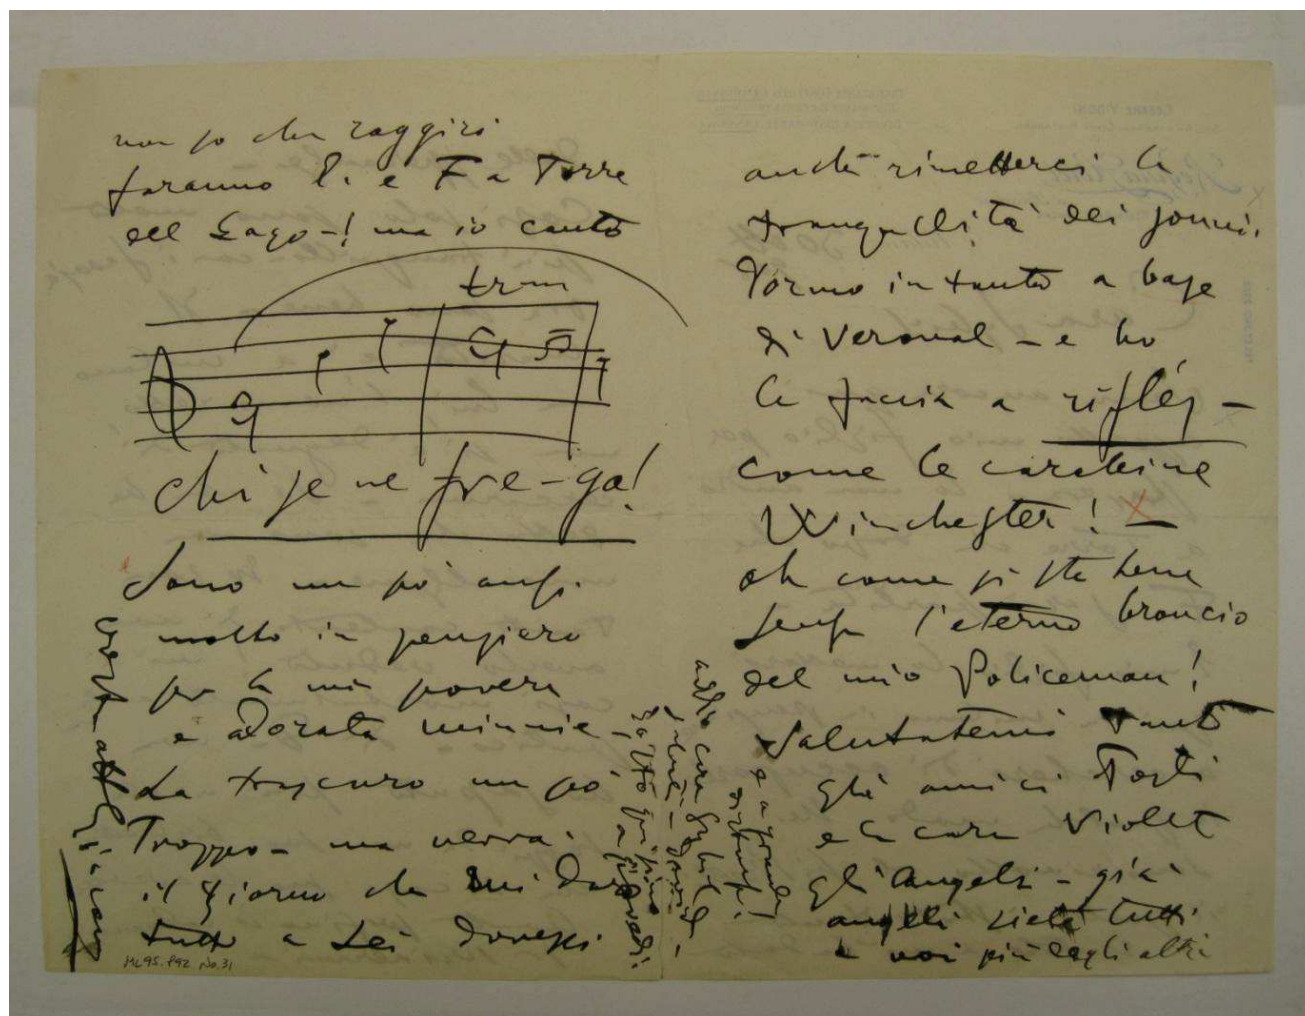 non so che raggiri
faranno lì e F a Torre
del Lago-! ma io canto
trm
chi se ne fre-ga!
Sono un po' ansi
molto in pensiero
per la mia povera
e adorata minnie -
La trascuro un po'
Troppo - ma verrà
il giorno che mi darò
tutto a Lei dovessi
anche rimetterci la
tranquillità dei sonni.
Dormo intanto a base
di Veronal - e ho
la faccia a riflés -
come le carabine
Winchester! -
oh come si sta bene
senza l'eterno broncio
del mio Policeman!
Salutatemi tanto
gli amici Tosti
e la cara Violet
gli Angeli - già
angeli siete tutti
e voi più degli altri
addio cara Sybil
saluti
e a
vostro aff
ML95.P92 No.31
CESARE VIGONI